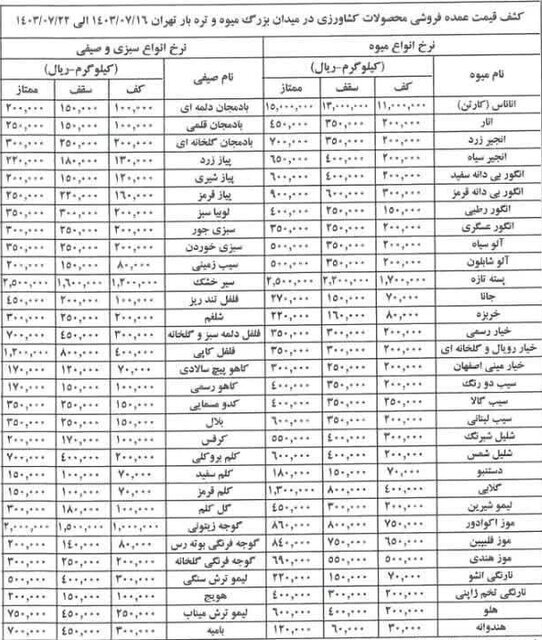 کشف قیمت عمده فروشی محصولات کشاورزی در میدان بزرگ میوه و تره بار تهران ۱۴۰۳/۰۷/۱۶ الی ۱۴۰۳/۰۷/۲۲
نرخ انواع میوه نرخ انواع سبزی و صیفی
نام میوه (کیلوگرم-ریال) نام صیفی (کیلوگرم-ریال)
کف سقف ممتاز کف سقف ممتاز
آناناس (کارتن) ۱۱,۰۰۰,۰۰۰ ۱۳,۰۰۰,۰۰۰ ۱۵,۰۰۰,۰۰۰ بادمجان دلمه ای ۱۰۰,۰۰۰ ۱۵۰,۰۰۰ ۲۰۰,۰۰۰
انار ۲۰۰,۰۰۰ ۳۵۰,۰۰۰ ۴۵۰,۰۰۰ بادمجان قلمی ۱۰۰,۰۰۰ ۱۵۰,۰۰۰ ۲۵۰,۰۰۰
انجیر زرد ۲۰۰,۰۰۰ ۳۵۰,۰۰۰ ۷۰۰,۰۰۰ بادمجان گلخانه ای ۲۰۰,۰۰۰ ۲۵۰,۰۰۰ ۳۰۰,۰۰۰
انجیر سیاه ۲۰۰,۰۰۰ ۴۰۰,۰۰۰ ۶۵۰,۰۰۰ پیاز زرد ۱۳۰,۰۰۰ ۱۸۰,۰۰۰ ۲۲۰,۰۰۰
انگور بی دانه سفید ۲۰۰,۰۰۰ ۴۰۰,۰۰۰ ۶۰۰,۰۰۰ پیاز شیری ۱۲۰,۰۰۰ ۱۵۰,۰۰۰ ۲۰۰,۰۰۰
انگور بی دانه قرمز ۳۰۰,۰۰۰ ۶۰۰,۰۰۰ ۹۰۰,۰۰۰ پیاز قرمز ۱۶۰,۰۰۰ ۲۲۰,۰۰۰ ۲۵۰,۰۰۰
انگور رطبی ۱۵۰,۰۰۰ ۲۵۰,۰۰۰ ۴۰۰,۰۰۰ لوبیا سبز ۲۰۰,۰۰۰ ۳۰۰,۰۰۰ ۳۵۰,۰۰۰
انگور عسگری ۲۰۰,۰۰۰ ۲۵۰,۰۰۰ ۳۵۰,۰۰۰ سبزی جور ۲۰۰,۰۰۰ ۲۵۰,۰۰۰ ۳۵۰,۰۰۰
آلو سیاه ۲۰۰,۰۰۰ ۳۵۰,۰۰۰ ۵۰۰,۰۰۰ سبزی خوردن ۲۰۰,۰۰۰ ۲۵۰,۰۰۰ ۳۵۰,۰۰۰
آلو شابلون ۲۰۰,۰۰۰ ۳۵۰,۰۰۰ ۵۰۰,۰۰۰ سیب زمینی ۸۰,۰۰۰ ۱۵۰,۰۰۰ ۲۰۰,۰۰۰
پسته تازه ۱,۷۰۰,۰۰۰ ۲,۲۰۰,۰۰۰ ۲,۵۰۰,۰۰۰ سیر خشک ۱,۲۰۰,۰۰۰ ۱,۶۰۰,۰۰۰ ۲,۵۰۰,۰۰۰
جانا ۷۰,۰۰۰ ۱۵۰,۰۰۰ ۲۷۰,۰۰۰ فلفل تند ریز ۱۰۰,۰۰۰ ۲۰۰,۰۰۰ ۴۵۰,۰۰۰
خربزه ۸۰,۰۰۰ ۱۶۰,۰۰۰ ۲۲۰,۰۰۰ شلغم ۲۰۰,۰۰۰ ۲۵۰,۰۰۰ ۳۰۰,۰۰۰
خیار رسمی ۲۰۰,۰۰۰ ۳۰۰,۰۰۰ ۳۵۰,۰۰۰ فلفل دلمه سبز و گلخانه ۳۰۰,۰۰۰ ۴۵۰,۰۰۰ ۷۰۰,۰۰۰
خیار رویال و گلخانه ای ۲۰۰,۰۰۰ ۳۰۰,۰۰۰ ۳۵۰,۰۰۰ فلفل کاپی ۴۰۰,۰۰۰ ۸۰۰,۰۰۰ ۱,۲۰۰,۰۰۰
خیار مینی اصفهان ۲۰۰,۰۰۰ ۳۰۰,۰۰۰ ۳۵۰,۰۰۰ کاهو پیچ سالادی ۷۰,۰۰۰ ۱۲۰,۰۰۰ ۱۷۰,۰۰۰
سیب دو رنگ ۲۰۰,۰۰۰ ۳۵۰,۰۰۰ ۴۰۰,۰۰۰ کاهو رسمی ۱۰۰,۰۰۰ ۱۵۰,۰۰۰ ۱۷۰,۰۰۰
سیب گالا ۲۵۰,۰۰۰ ۳۵۰,۰۰۰ ۴۰۰,۰۰۰ کدو مسمایی ۱۵۰,۰۰۰ ۲۵۰,۰۰۰ ۳۵۰,۰۰۰
سیب لبنانی ۲۰۰,۰۰۰ ۳۵۰,۰۰۰ ۶۰۰,۰۰۰ بلال ۱۵۰,۰۰۰ ۲۵۰,۰۰۰ ۳۵۰,۰۰۰
شلیل شبرنگ ۳۰۰,۰۰۰ ۴۰۰,۰۰۰ ۵۵۰,۰۰۰ کرفس ۱۰۰,۰۰۰ ۱۷۰,۰۰۰ ۲۰۰,۰۰۰
شلیل شمس ۲۰۰,۰۰۰ ۴۰۰,۰۰۰ ۶۰۰,۰۰۰ کلم بروکلی ۲۰۰,۰۰۰ ۴۰۰,۰۰۰ ۷۰۰,۰۰۰
دستنبو ۷۰,۰۰۰ ۱۵۰,۰۰۰ ۱۸۰,۰۰۰ کلم سفید ۷۰,۰۰۰ ۱۰۰,۰۰۰ ۱۵۰,۰۰۰
گلابی ۴۰۰,۰۰۰ ۸۰۰,۰۰۰ ۱,۳۰۰,۰۰۰ کلم قرمز ۷۰,۰۰۰ ۱۰۰,۰۰۰ ۱۵۰,۰۰۰
لیمو شیرین ۲۰۰,۰۰۰ ۳۰۰,۰۰۰ ۴۵۰,۰۰۰ گل کلم ۱۰۰,۰۰۰ ۱۸۰,۰۰۰ ۳۰۰,۰۰۰
موز اکوادور ۷۵۰,۰۰۰ ۸۰۰,۰۰۰ ۸۶۰,۰۰۰ گوجه زیتونی ۱,۰۰۰,۰۰۰ ۱,۵۰۰,۰۰۰ ۲,۰۰۰,۰۰۰
موز فلیپین ۶۵۰,۰۰۰ ۷۵۰,۰۰۰ ۸۴۰,۰۰۰ گوجه فرنگی بوته رس ۸۰,۰۰۰ ۱۴۰,۰۰۰ ۲۰۰,۰۰۰
موز هندی ۵۰۰,۰۰۰ ۵۵۰,۰۰۰ ۶۹۰,۰۰۰ گوجه فرنگی گلخانه ۲۰۰,۰۰۰ ۲۵۰,۰۰۰ ۳۰۰,۰۰۰
نارنگی انشو ۷۰,۰۰۰ ۱۵۰,۰۰۰ ۲۲۰,۰۰۰ لیمو ترش سنگی ۳۰۰,۰۰۰ ۴۰۰,۰۰۰ ۵۰۰,۰۰۰
نارنگی تخم ژاپنی ۲۰۰,۰۰۰ ۳۰۰,۰۰۰ ۴۰۰,۰۰۰ هویج ۱۰۰,۰۰۰ ۱۵۰,۰۰۰ ۲۰۰,۰۰۰
هلو ۲۰۰,۰۰۰ ۴۰۰,۰۰۰ ۶۰۰,۰۰۰ لیمو ترش میناب ۲۵۰,۰۰۰ ۴۵۰,۰۰۰ ۷۵۰,۰۰۰
هندوانه ۳۰,۰۰۰ ۶۰,۰۰۰ ۱۲۰,۰۰۰ بامیه ۳۰۰,۰۰۰ ۴۵۰,۰۰۰ ۷۰۰,۰۰۰